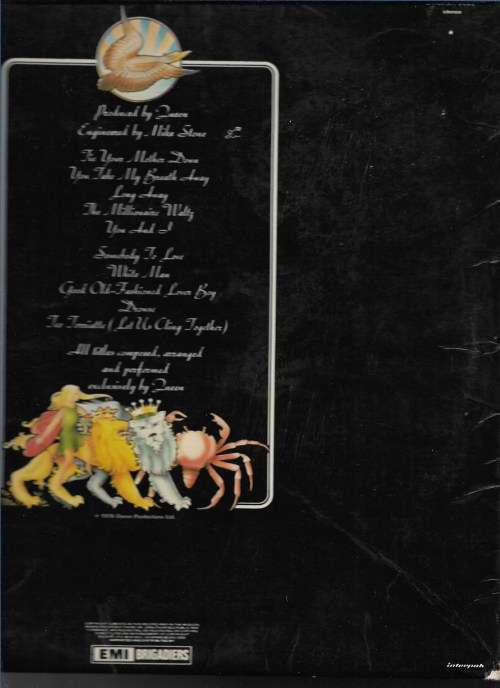 stereo
Produced by Queen
Engineered by Mike Stone
Tie Your Mother Down
You Take My Breath Away
Long Away
The Millionaire Waltz
You And I
Somebody To Love
White Man
Good Old-Fashioned Lover Boy
Drowse
Teo Torriatte (Let Us Cling Together)
All titles composed, arranged
and performed
exclusively by Queen
℗ 1976 Queen Productions Ltd.
EMI BRIGADIERS
interpak